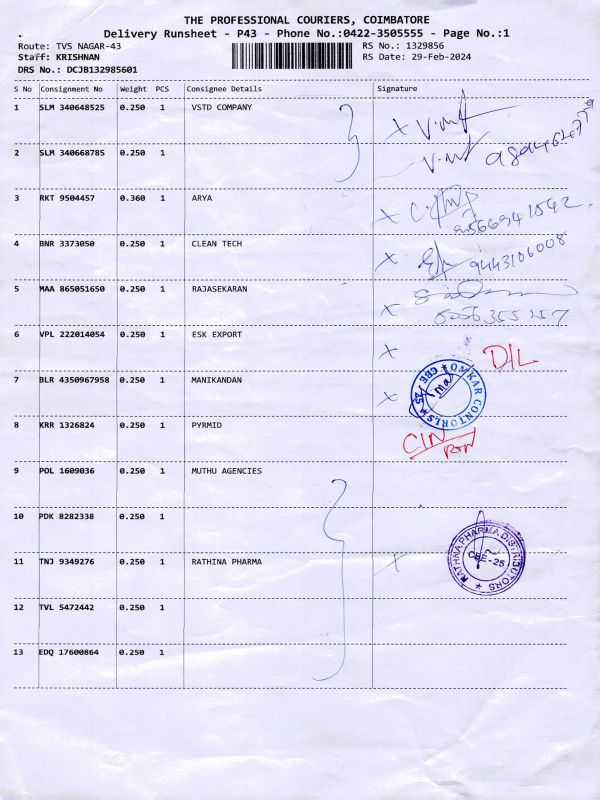 THE PROFESSIONAL COURIERS, COIMBATORE
Delivery Runsheet - P43 - Phone No.:0422-3505555 - Page No.:1
Route: TVS NAGAR-43 RS No.: 1329856
Staff: KRISHNAN RS Date: 29-Feb-2024
DRS No.: DCJB132985601
S No Consignment No Weight PCS Consignee Details Signature
1 SLM 340648525 0.250 1 VSTD COMPANY
2 SLM 340668785 0.250 1
3 RKT 9504457 0.360 1 ARYA
9566941542.
4 BNR 3373050 0.250 1 CLEAN TECH
9443106008
5 MAA 865051650 0.250 1 RAJASEKARAN
6 VPL 222014054 0.250 1 ESK EXPORT
D/L
7 BLR 4350967958 0.250 1 MANIKANDAN
OMKAR CONTORLS
CBE
8 KRR 1326824 0.250 1 PYRMID
9 POL 1609036 0.250 1 MUTHU AGENCIES
10 PDK 8282338 0.250 1
11 TNJ 9349276 0.250 1 RATHINA PHARMA
RATHNA PHARMA DISTRIBUTORS
CBE-25
12 TVL 5472442 0.250 1
13 EDQ 17600864 0.250 1